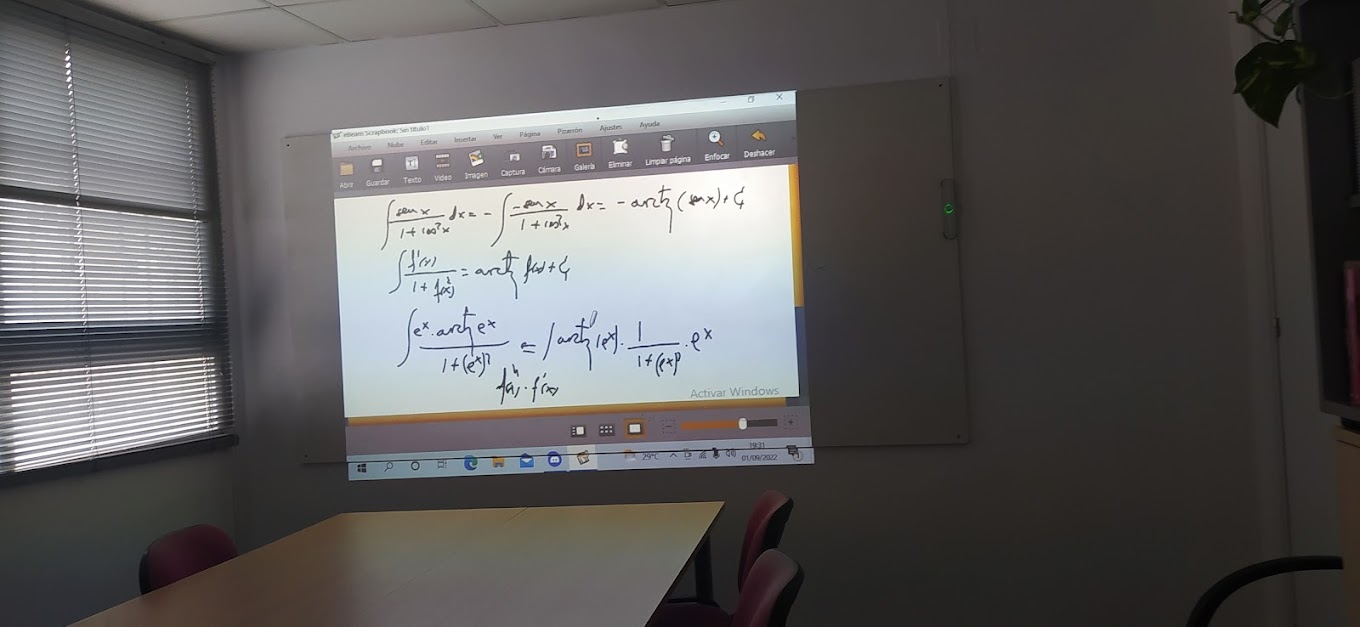 eBeam Scrapbook: Sin título1
Archivo Nube Editar Insertar Ver Página Pizarrón Ajustes Ayuda
Abrir Guardar Texto Video Imagen Captura Cámara Galería Eliminar Limpiar página Enfocar Deshacer
∫ sen x / (1 + cos² x) dx = - ∫ -sen x / (1 + cos² x) dx = - arctg (sen x) + C
∫ f'(x) / (1 + f(x)²) = arctg f(x) + C
∫ e^x · arctg e^x / (1 + (e^x)²) = ∫ arctg (e^x) · 1 / (1 + (e^x)²) · e^x
f(x)^n · f'(x)
Activar Windows
29°C 19:31
01/09/2022